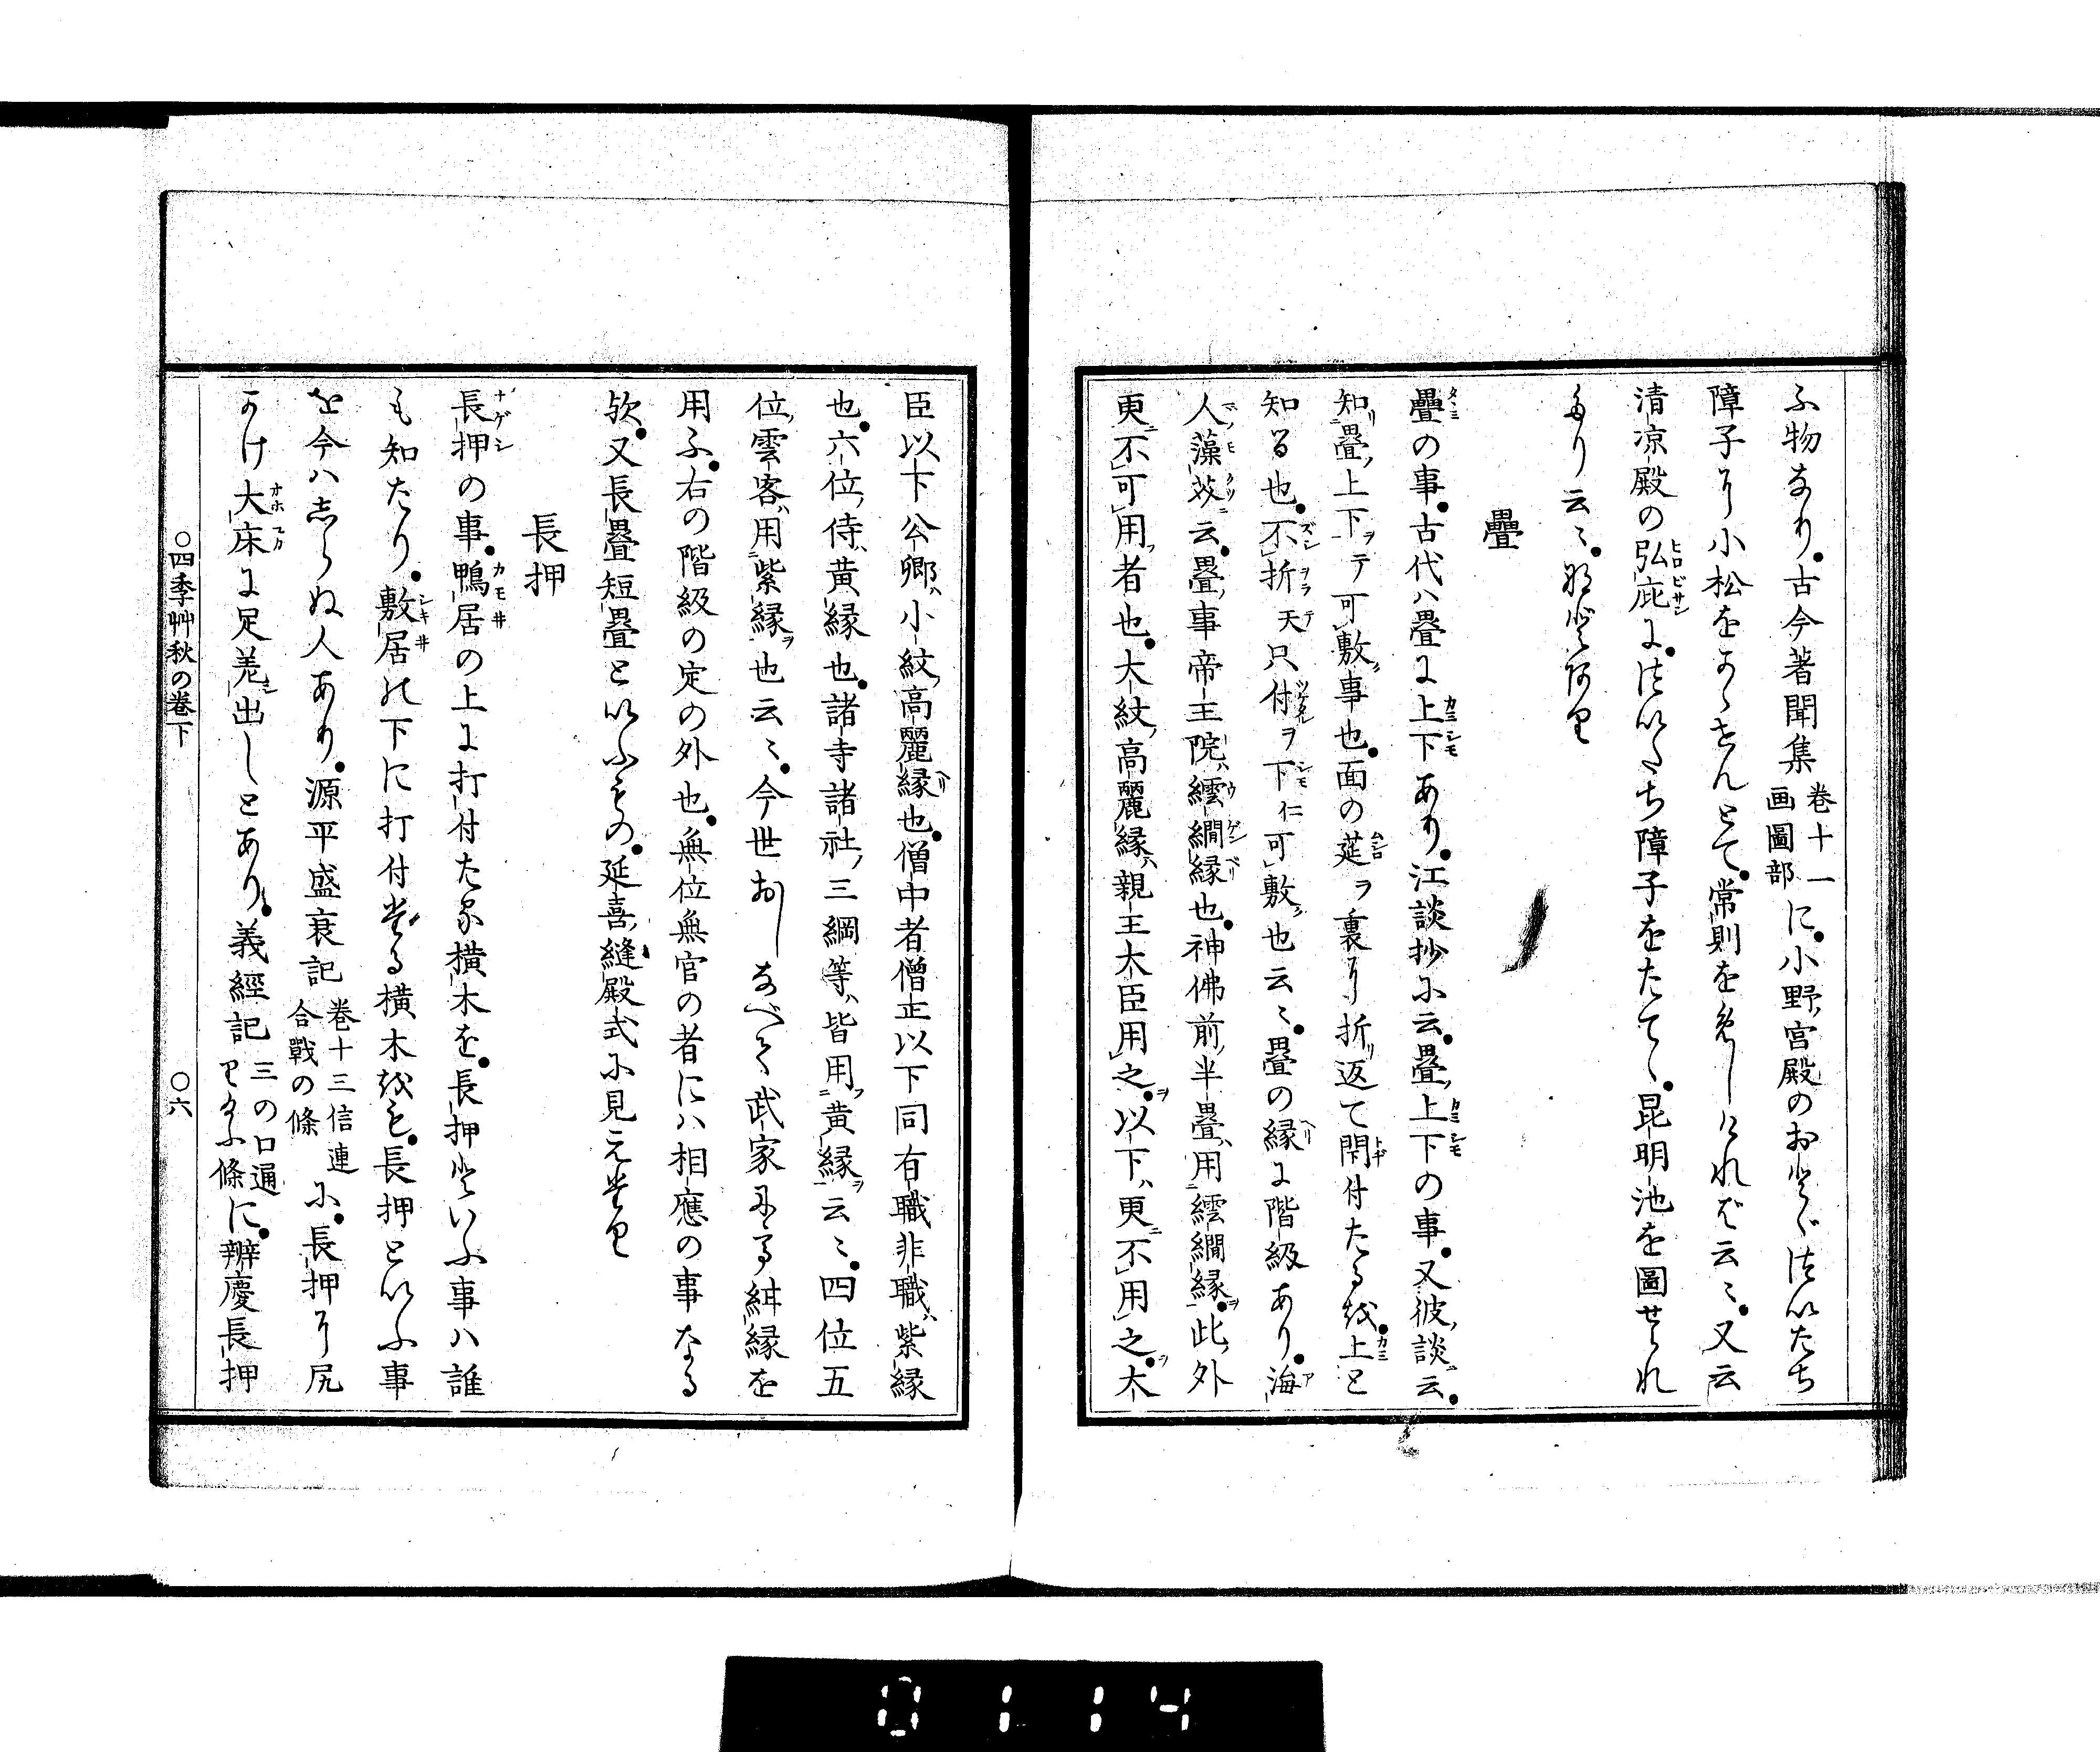 ふ物なり。古今著聞集巻十一画圖部に。小野宮殿のおとゞついたち
障子に小松をかゝせんとて。常則をめしければ云〻。又云
清凉殿の弘庇に。ついたち障子をたてゝ。昆明池を圖せられ
たり云〻。
疊
疊の事。古代ハ畳に上下あり。江談抄に云。畳上下の事。又彼談云。
知畳上下ヲテ可敷事也。面の莚ヲ裏に折返て閇付たるを。上と
知る也。不折天只付ヲ下仁可敷也云〻。畳の縁に階級あり。海
人藻芥云。畳事帝王院繧繝縁也。神佛前半畳用繧繝縁。此外
更不可用者也。大紋高麗縁親王大臣用之。以下更不用之。大
臣以下公卿小紋高麗縁也。僧中者僧正以下同有職非職紫縁
也。六位侍黄縁也。諸寺諸社三綱等皆用黄縁云〻。四位五
位雲客用紫縁也云〻。今世おしなべて武家にる縁を
用ふ。右の階級の定の外也。無位無官の者にハ相應の事なる
欤。又長畳短畳といふもの。延喜縫殿式に見えたり
長押
長押の事。鴨居の上に打付たる横木を。長押といふ事ハ誰
も知たり。敷居の下に打付たる横木をも。長押といふ事
を今ハしらぬ人あり。源平盛衰記巻十三信連合戰の條に。長押に尻
かけ大床に足差出しとあり。義經記三の口通條に。辨慶長押
○四季艸秋の巻下
○六
0114